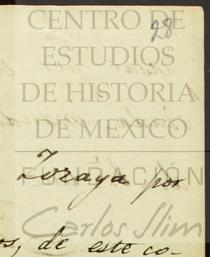 28
CENTRO DE
ESTUDIOS
DE HISTORIA
DE MEXICO
Zoraya por
FUNDACIÓN
Carlos Slim
os, de este co-